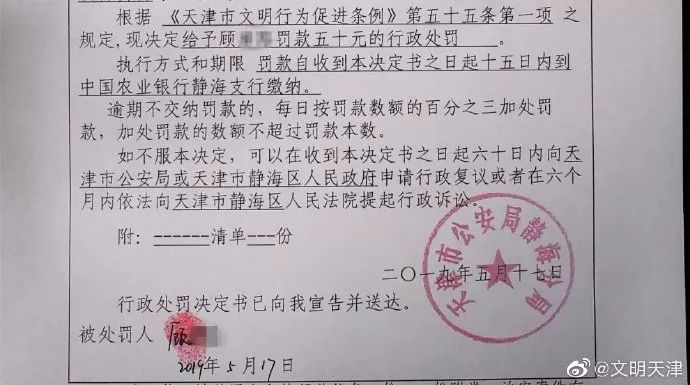 根据 《天津市文明行为促进条例》第五十五条第一项 之
规定,现决定给予顾 罚款五十元的行政处罚 。
执行方式和期限 罚款自收到本决定书之日起十五日内到
中国农业银行静海支行缴纳。
逾期不交纳罚款的,每日按罚款数额的百分之三加处罚
款,加处罚款的数额不超过罚款本数。
如不服本决定,可以在收到本决定书之日起六十日内向天
津市公安局或天津市静海区人民政府申请行政复议或者在六个
月内依法向天津市静海区人民法院提起行政诉讼。
附:------清单---份
天津市公安局静海分局
二〇一九年五月十七日
行政处罚决定书已向我宣告并送达。
被处罚人 顾
2019年5月17日
@文明天津